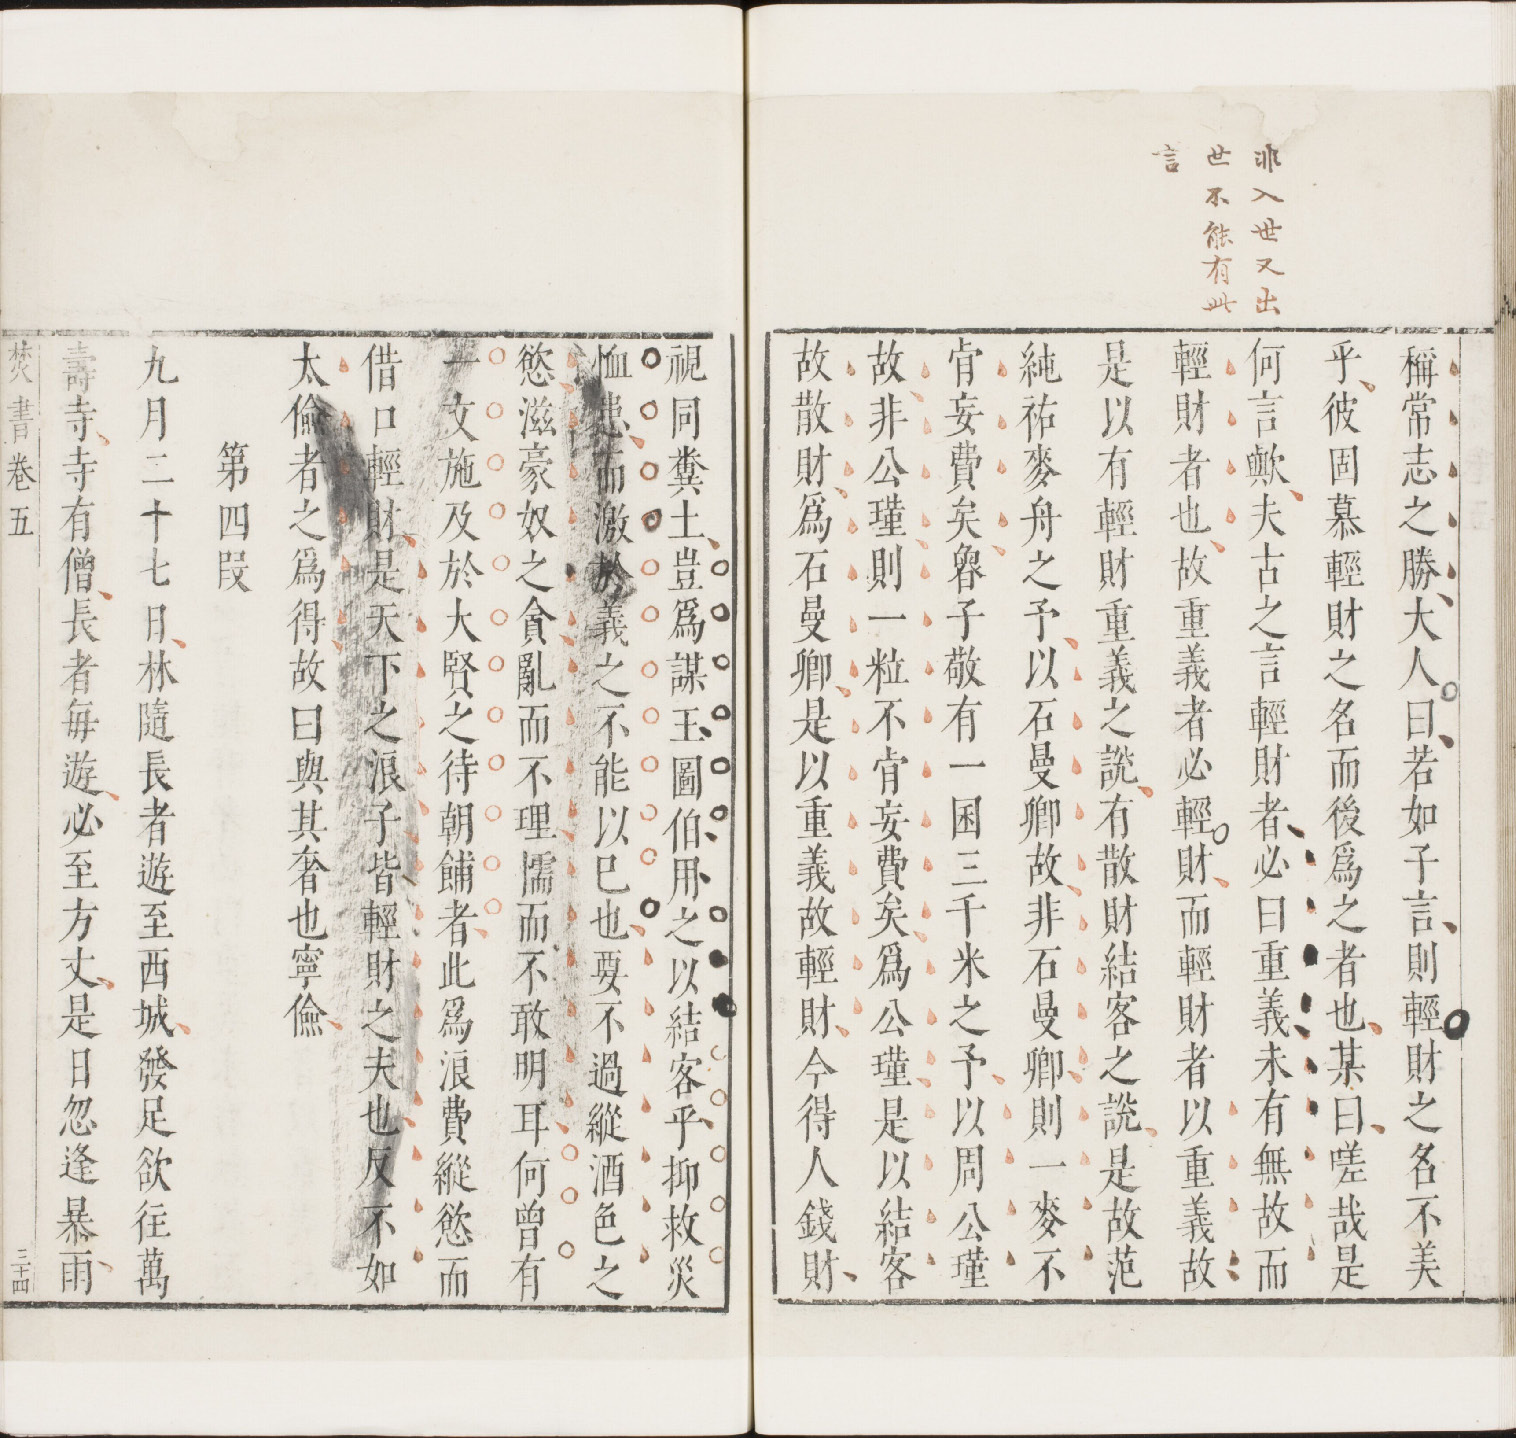 非入世又出
世不能有此
言
稱常志之勝大人曰若如子言則輕財之名不美
乎彼固慕輕財之名而後爲之者也某曰嗟哉是
何言歟夫古之言輕財者必曰重義未有無故而
輕財者也故重義者必輕財而輕財者以重義故
是以有輕財重義之說有散財結客之說是故范
純祐麥舟之予以石曼卿故非石曼卿則一麥不
肯妄費矣魯子敬有一囷三千米之予以周公瑾
故非公瑾則一粒不肯妄費矣爲公瑾是以結客
故散財爲石曼卿是以重義故輕財今得人錢財
視同糞土豈爲謀王圖伯用之以結客乎抑救災
恤患而激於義之不能以已也要不過縱酒色之
慾滋豪奴之貪亂而不理懦而不敢明耳何曾有
一文施及於大賢之待朝餔者此爲浪費縱慾而
借口輕財是天下之浪子皆輕財之夫也反不如
太儉者之爲得故曰與其奢也寧儉
第四段
九月二十七日林隨長者遊至西城發足欲往萬
壽寺寺有僧長者每遊必至方丈是日忽逢暴雨
焚書卷五
三十四